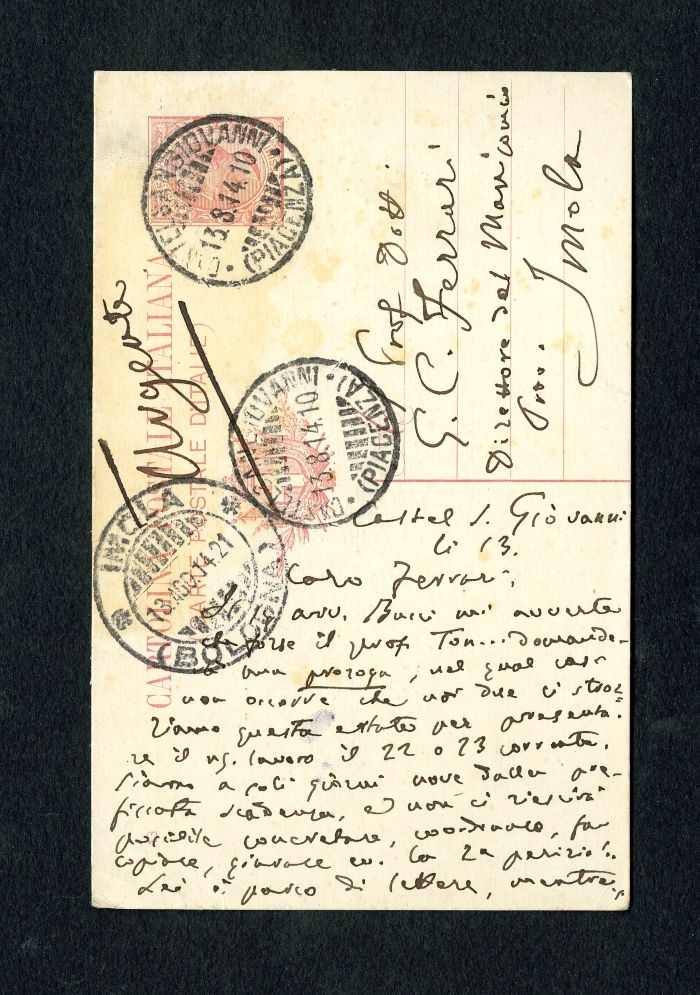 CARTOLINA POSTALE ITALIANA
(CARTE POSTALE D'ITALIE)
CASTEL SAN GIOVANNI
13.8.14.10
(PIACENZA)
CASTEL SAN GIOVANNI
13.8.14.10
(PIACENZA)
IMOLA
13 AGO 14.21
(BOLOGNA)
Urgente
Prof Dott.
G. C. Ferrari
Direttore del Manicomio
Prov.
Imola
Castel S. Giovanni
li 13.
Caro Ferrari,
L'avv. Bucci mi avverte
che forse il prof Ton... domande-
rà una proroga, nel qual caso
non occorre che noi due ci stroz-
ziamo questa estate per presenta-
re il ns. lavoro il 22 o 23 corrente.
Siamo a soli giorni nove dalla pre-
fissata scadenza, e non ci riescirà
possibile concretare, coordinare, far
copiare, giurare ecc. la 2a perizia.
Lei è parco di lettere, mentre